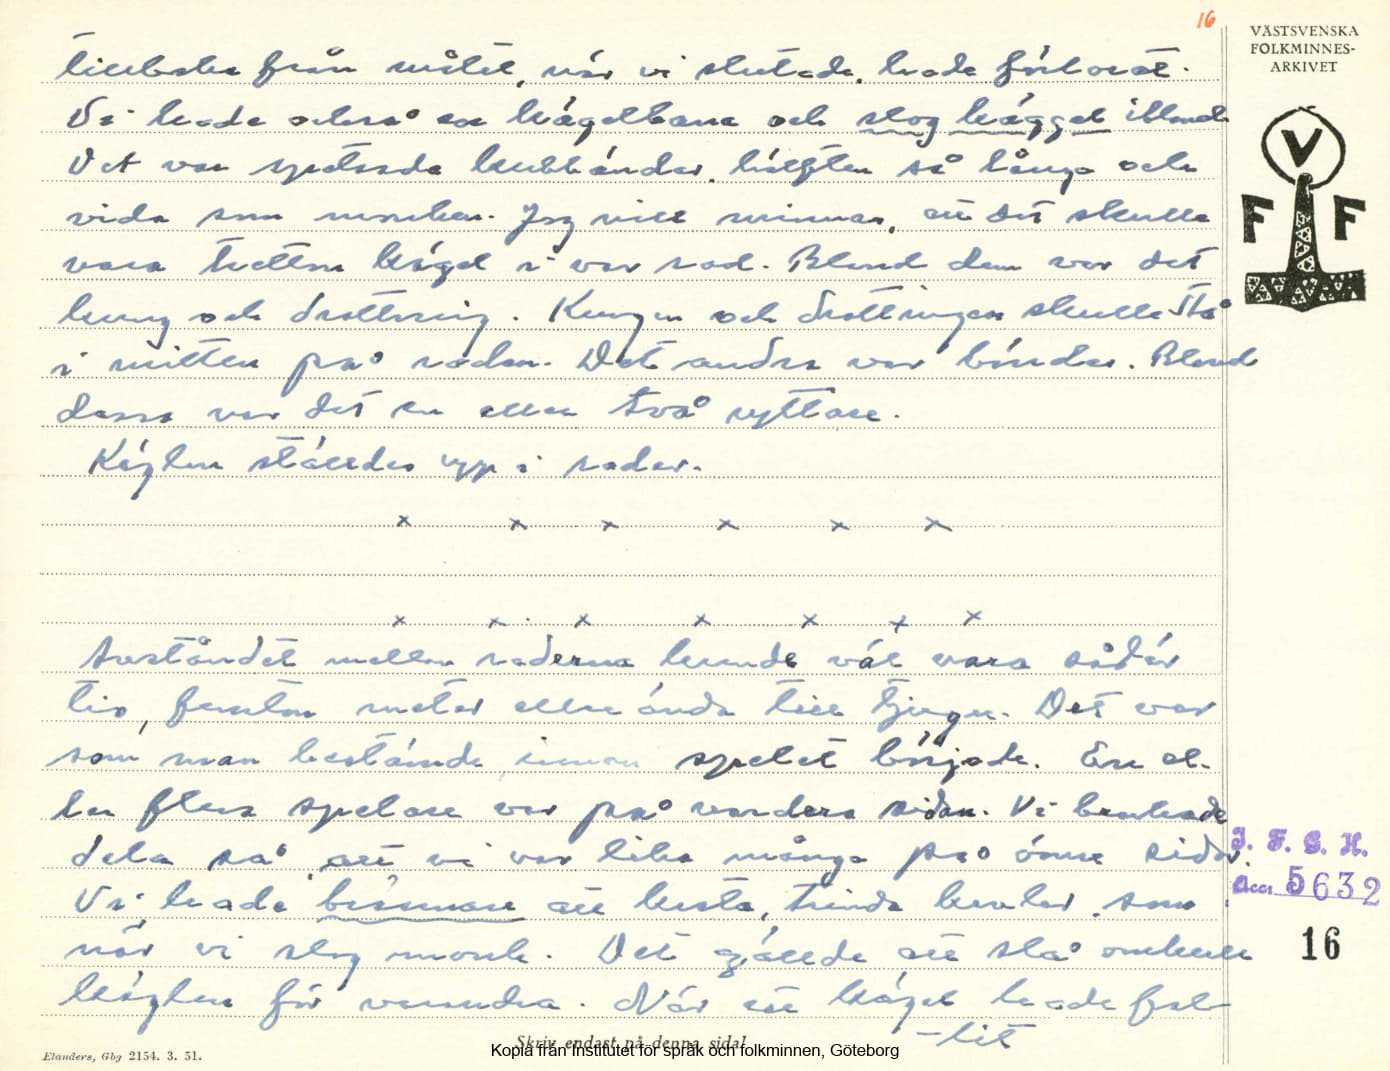 16
VÄSTSVENSKA
FOLKMINNES-
ARKIVET
V
F F
tillbaka från målet, när vi slutade, hade förlorat.
Vi hade också en kägelbana och slog käggel ibland
Det var spetsade kubbändar, hälften så långa och
vida som munken. Jag vill minnas, att det skulle
vara tretton kägel i var rad. Bland dem var det
kung och drottning. Kungen och drottningen skulle stå
i mitten på raden. Det andra var bönder. Bland
dessa var det en eller två ryttare.
Käglen ställdes upp i rader.
x x x x x x
x x x x x x x
Avståndet mellan raderna kunde väl vara sådär
tio, femton meter eller ända till tjugu. Det var
som man bestämde, innan spelet började. En el-
ler flera spelare var på vardera sidan. Vi brukade
dela så, att vi var lika många på ömse sidor.
Vi hade bässmare att kasta, trinda kavlar, som
när vi slog munk. Det gällde att slå omkull
käglen för varandra. När ett kägel hade fal-
-lit
J. F. G. H.
Acc. 5632
16
Elanders, Gbg 2154. 3. 51.
Skriv endast på denna sida!
Kopia från Institutet för språk och folkminnen, Göteborg